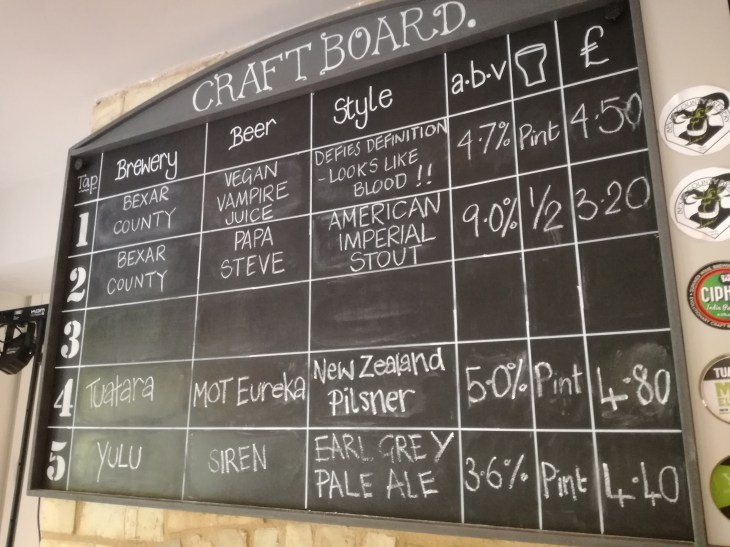 CRAFT BOARD.
Tap Brewery Beer Style a.b.v £
1 BEXAR COUNTY VEGAN VAMPIRE JUICE DEFIES DEFINITION - LOOKS LIKE BLOOD !! 4.7% Pint 4.50
2 BEXAR COUNTY PAPA STEVE AMERICAN IMPERIAL STOUT 9.0% 1/2 3.20
3
4 Tuatara MOT Eureka New Zealand Pilsner 5.0% Pint 4.80
5 YULU SIREN EARL GREY PALE ALE 3.6% Pint 4.40
CIPH
India Pale
TUA